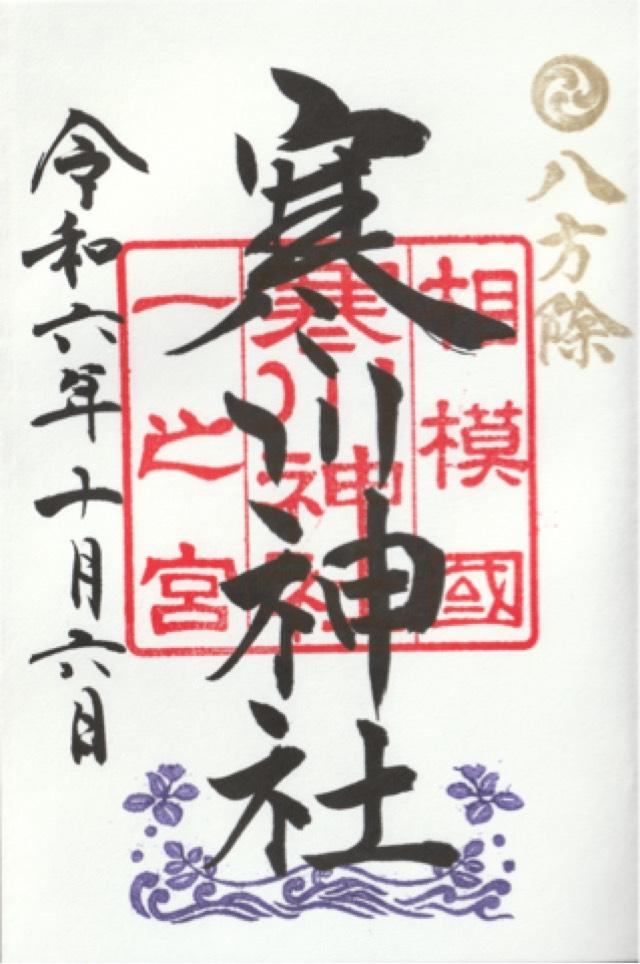 八方除
寒川神社
相模國
寒川神社
一之宮
令和六年十月六日